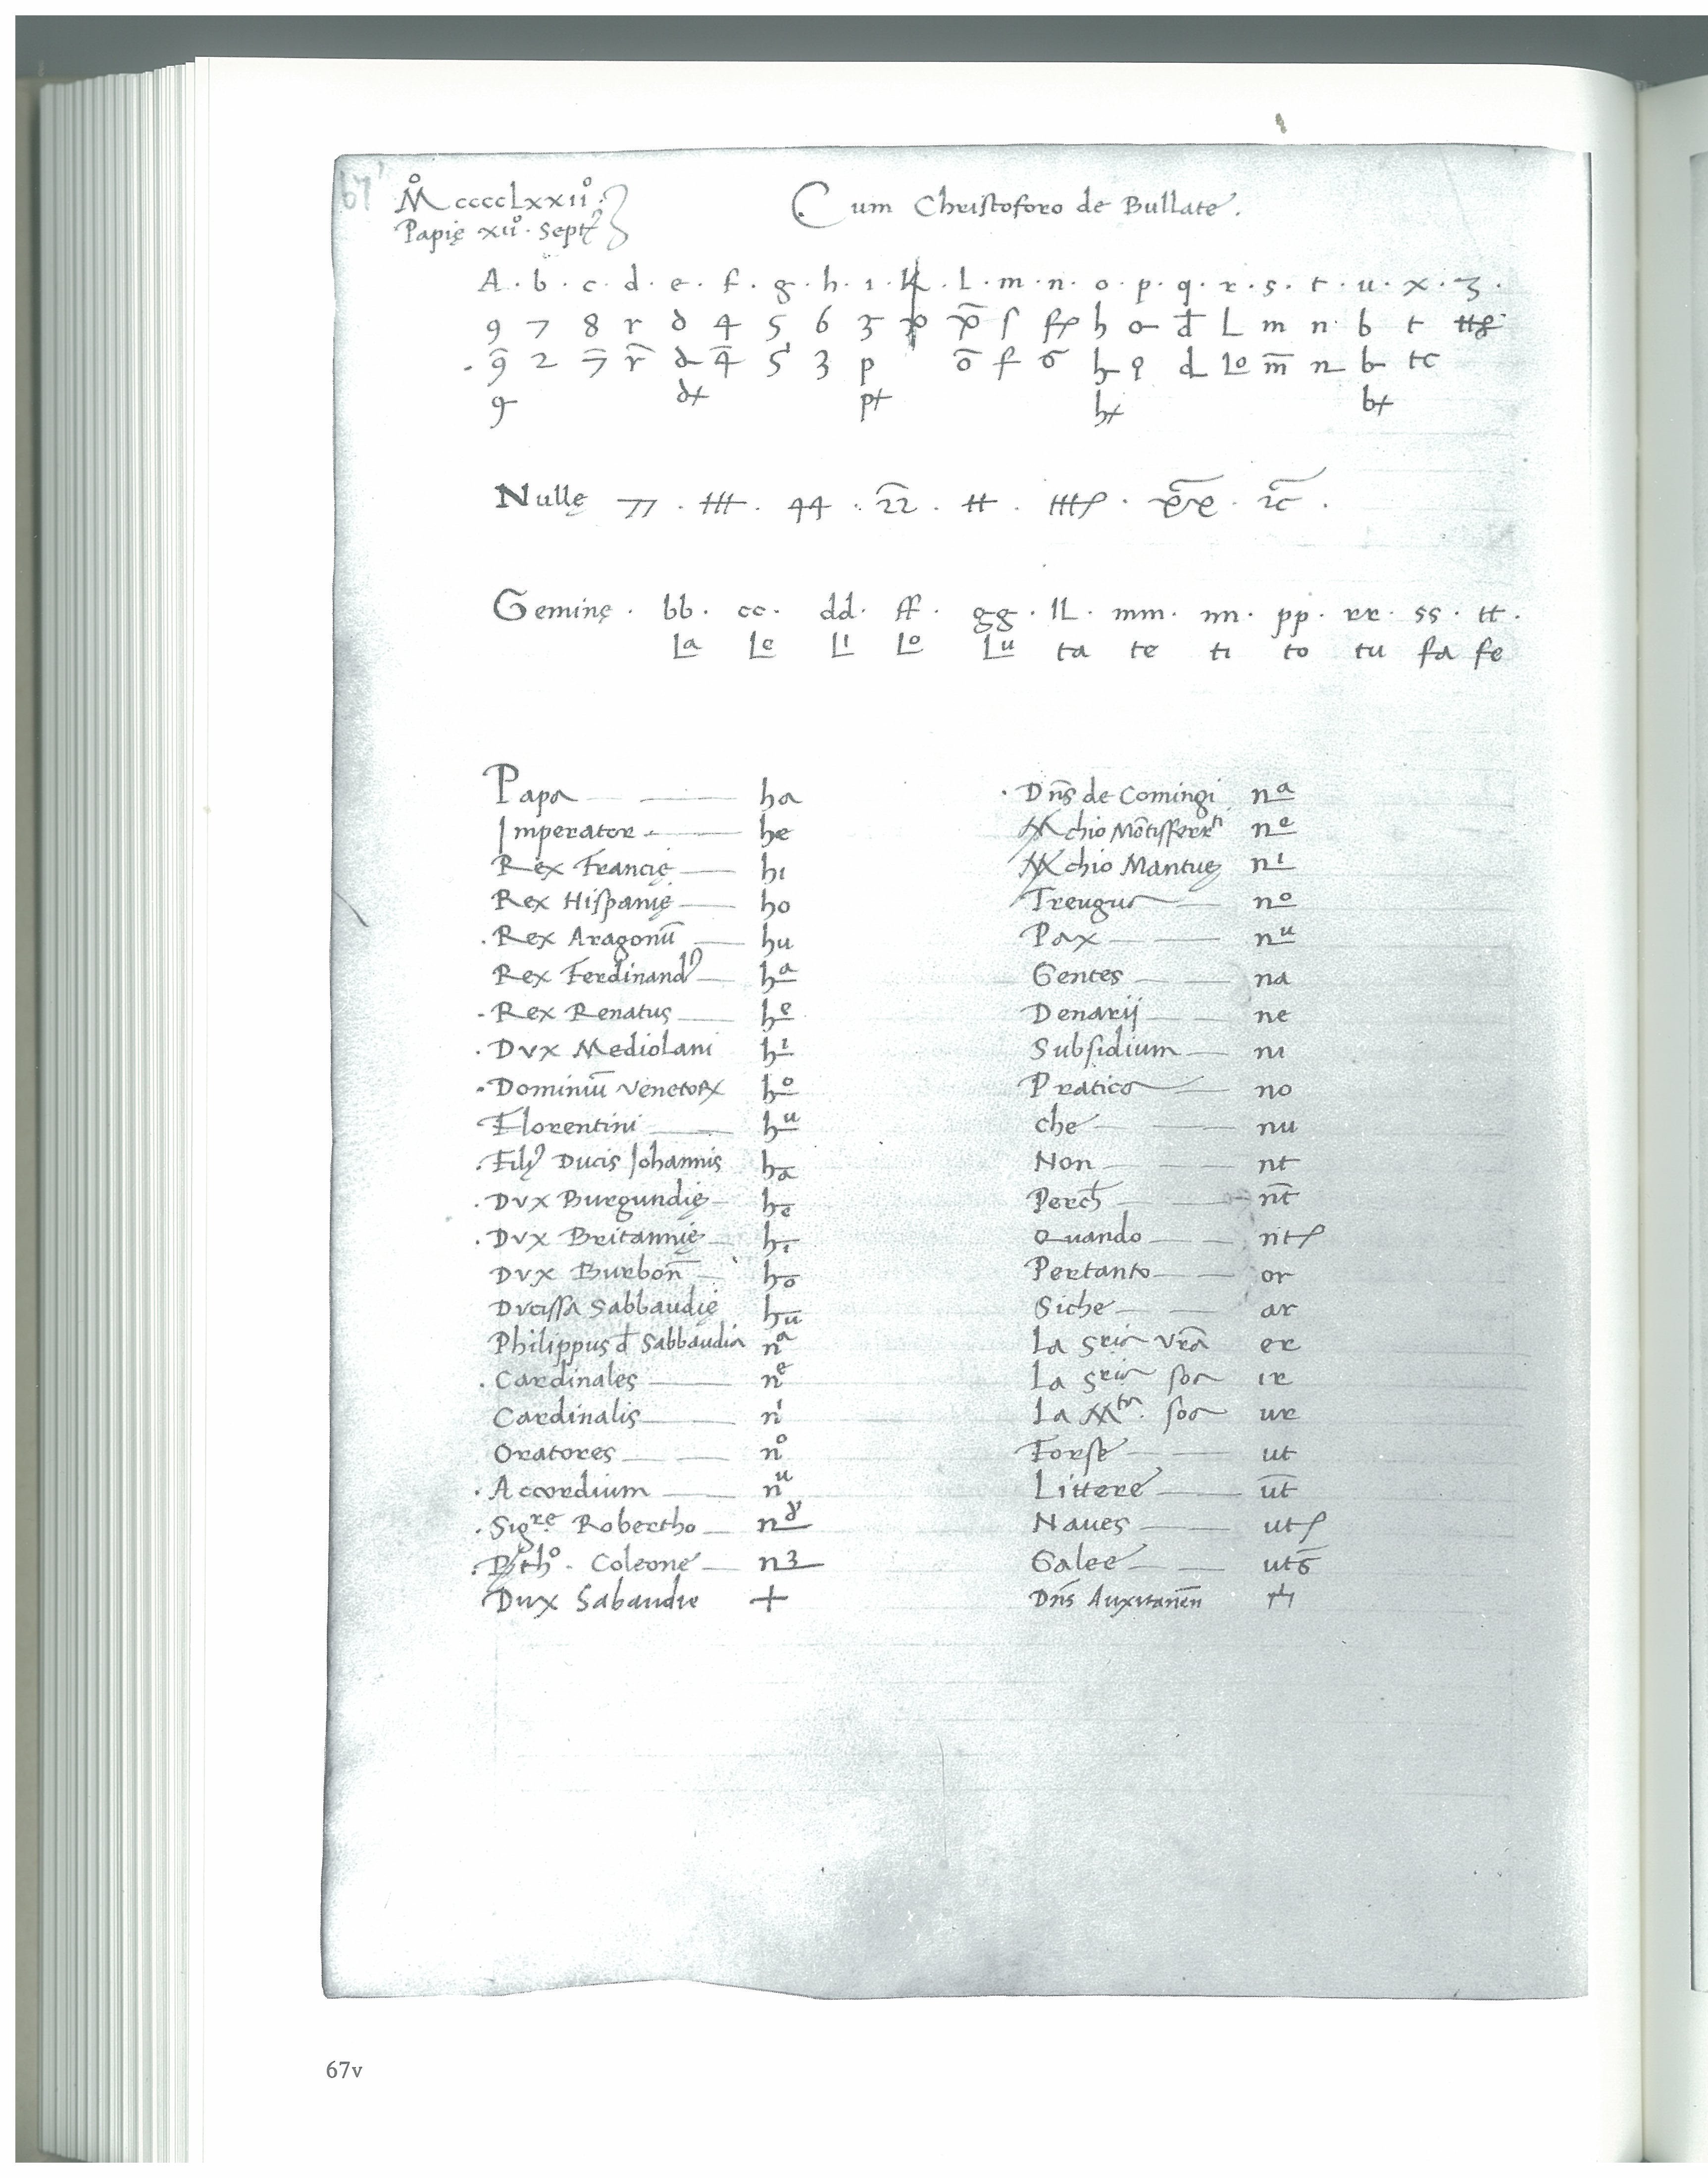 67
M° ccccLxxii°.
Papię xii°. Sept
Cum Christoforo de Bullate.
A . b . c . d . e . f . g . h . i . K . L . m . n . o . p . q . r . s . t . u . x . z .
9 7 8 r d 4 5 6 3 h d L m n b t
9̄ 2 7̄ r̄ 4̄ 5 3 p ō f h d Lo m̄ n b tc
9 d+ p+ h+ b+
Nullę 77 . ttt . 44 . 22 . tt .
Geminę . bb . cc . dd . ff . gg . lL . mm . nn . pp . rr . ss . tt .
La Le Li Lo Lu ta te ti to tu fa fe
Papa ha
Imperator he
Rex Francię hi
Rex Hispanię ho
. Rex Aragonū hu
Rex Ferdinandꝰ hᵃ
. Rex Renatus hᵉ
. Dvx Mediolani hⁱ
. Dominiū Venetoꝝ hᵒ
Florentini hᵘ
. Filijꝰ Ducis Johannis ha
. Dvx Burgundię he
. Dvx Britannię hi
Dvx Burbon̄ ho
Dvcissa Sabbaudię hu
Philippus đ Sabbaudia nᵃ
. Cardinales nᵉ
Cardinalis nⁱ
Oratores nᵒ
. Accordium nᵘ
. Sigʳᵉ Robertho n
. Bthᵒ. Coleone n3
Dux Sabaudie +
. Dn̄s de Comingi nᵃ
Mchio Mōtisferrᵗⁱ nᵉ
Mchio Mantuę nⁱ
Treugua nᵒ
Pax nᵘ
Gentes na
Denarij ne
Subsidium ni
Pratica no
che nu
Non nt
Perch̄ nt̄
Quando ntꝭ
Pertanto or
Siche ar
La Sʳⁱᵃ vrā er
La Sʳⁱᵃ soa ir
La Mᵗᵃ. soa ur
Forse ut
Littere ut̄
Naues utꝭ
Galee utō
Dn̄s Auxitanēn
67v